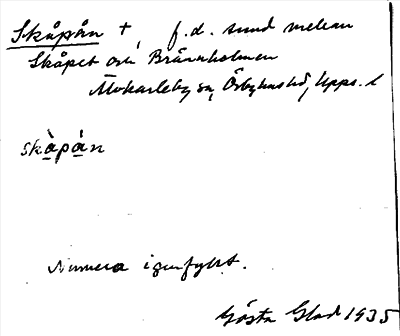 Skåpån +, f.d. sund mellan
Skåpet och Brännholmen
Älvkarleby sn, Örbyhus hd, Upps. l
skàpán
Numera igenfyllt.
Gösta Glad 1935